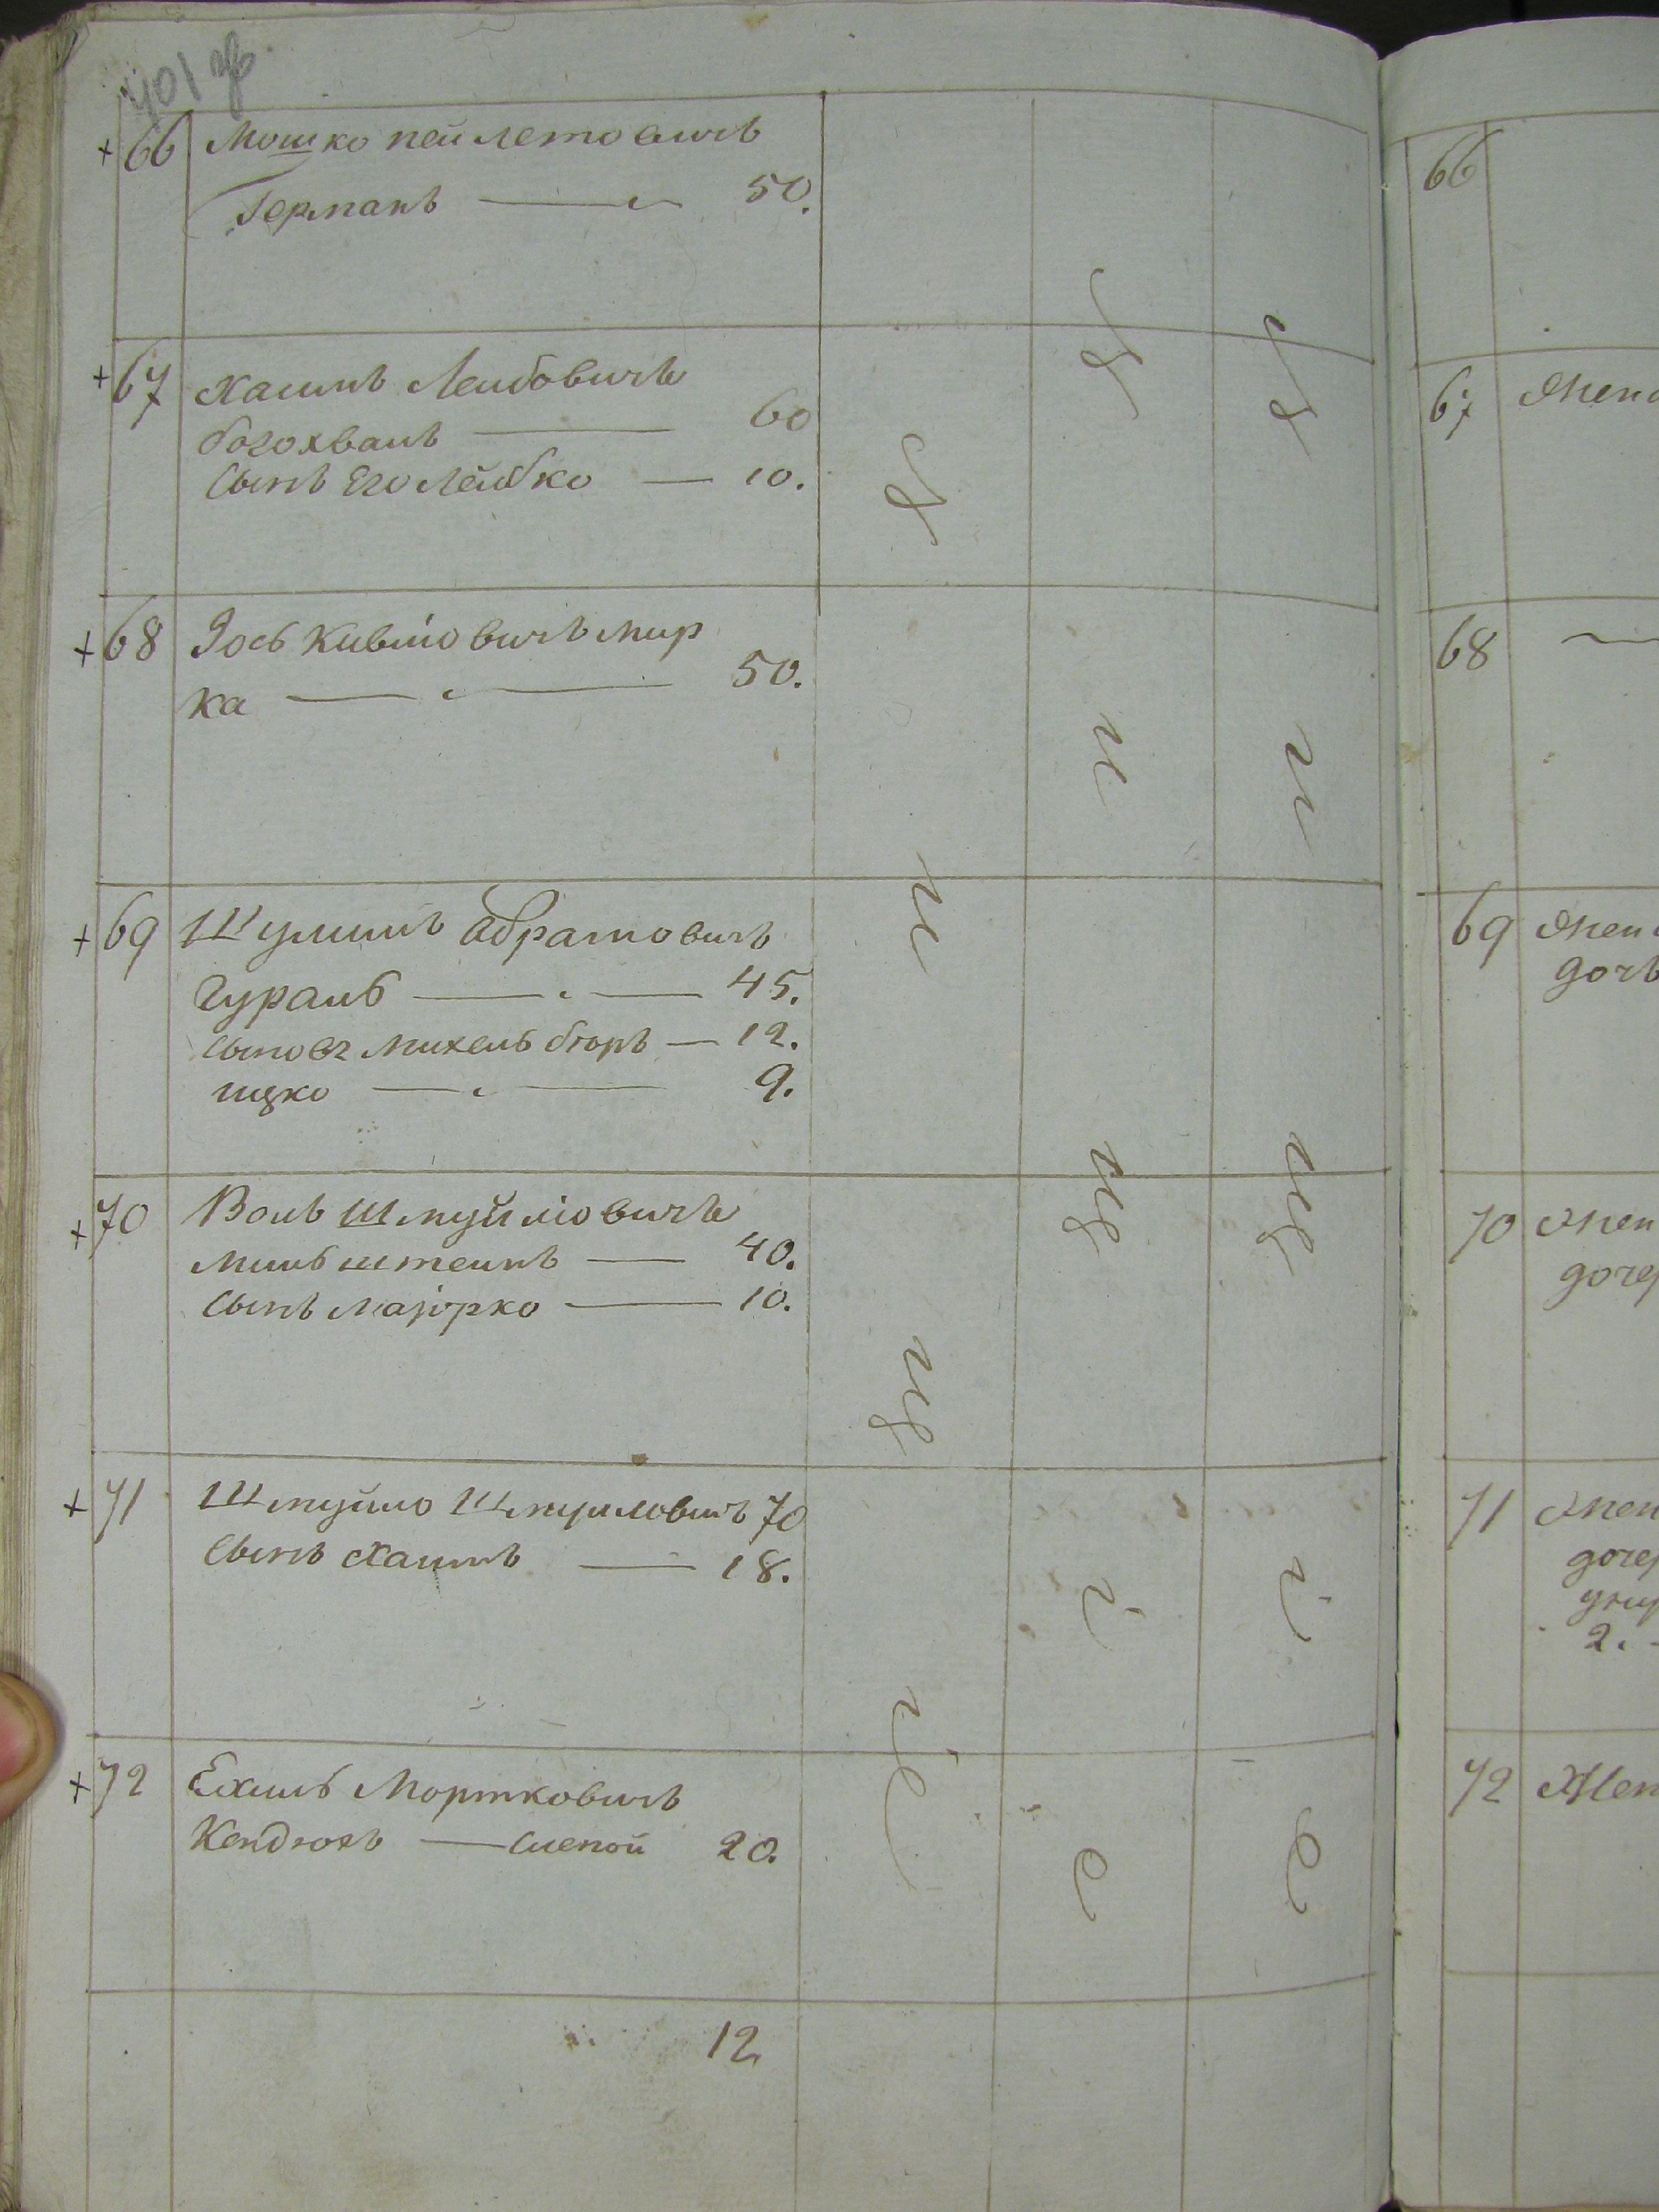 401 об.
+66 Мошко Пейлетовичъ
Германъ — 50.
+67 Хаимъ Леибовичъ
богохвалъ — 60
Сынъ Его Лейбко — 10.
+68 Іось Кивіовичъ мир
ка — 50.
+69 Шулимъ Абрамовичъ
Гураль — 45.
Сыновя Михель берь — 12.
ицко — 9.
+70 Воль Шмуйліовичъ
мильштеинъ — 40.
Сынъ маіорко — 10.
+71 Шмуйло Шмуиловичъ 70
Сынъ Хаимъ — 18.
+72 Ехиль Мортковичъ
Кендюхъ — Слепой 20.
12
66
67 Жена
68 —
69 Жена
дочь
70 Жен
дочер
71 Жен
дочер
2.
72 Жен